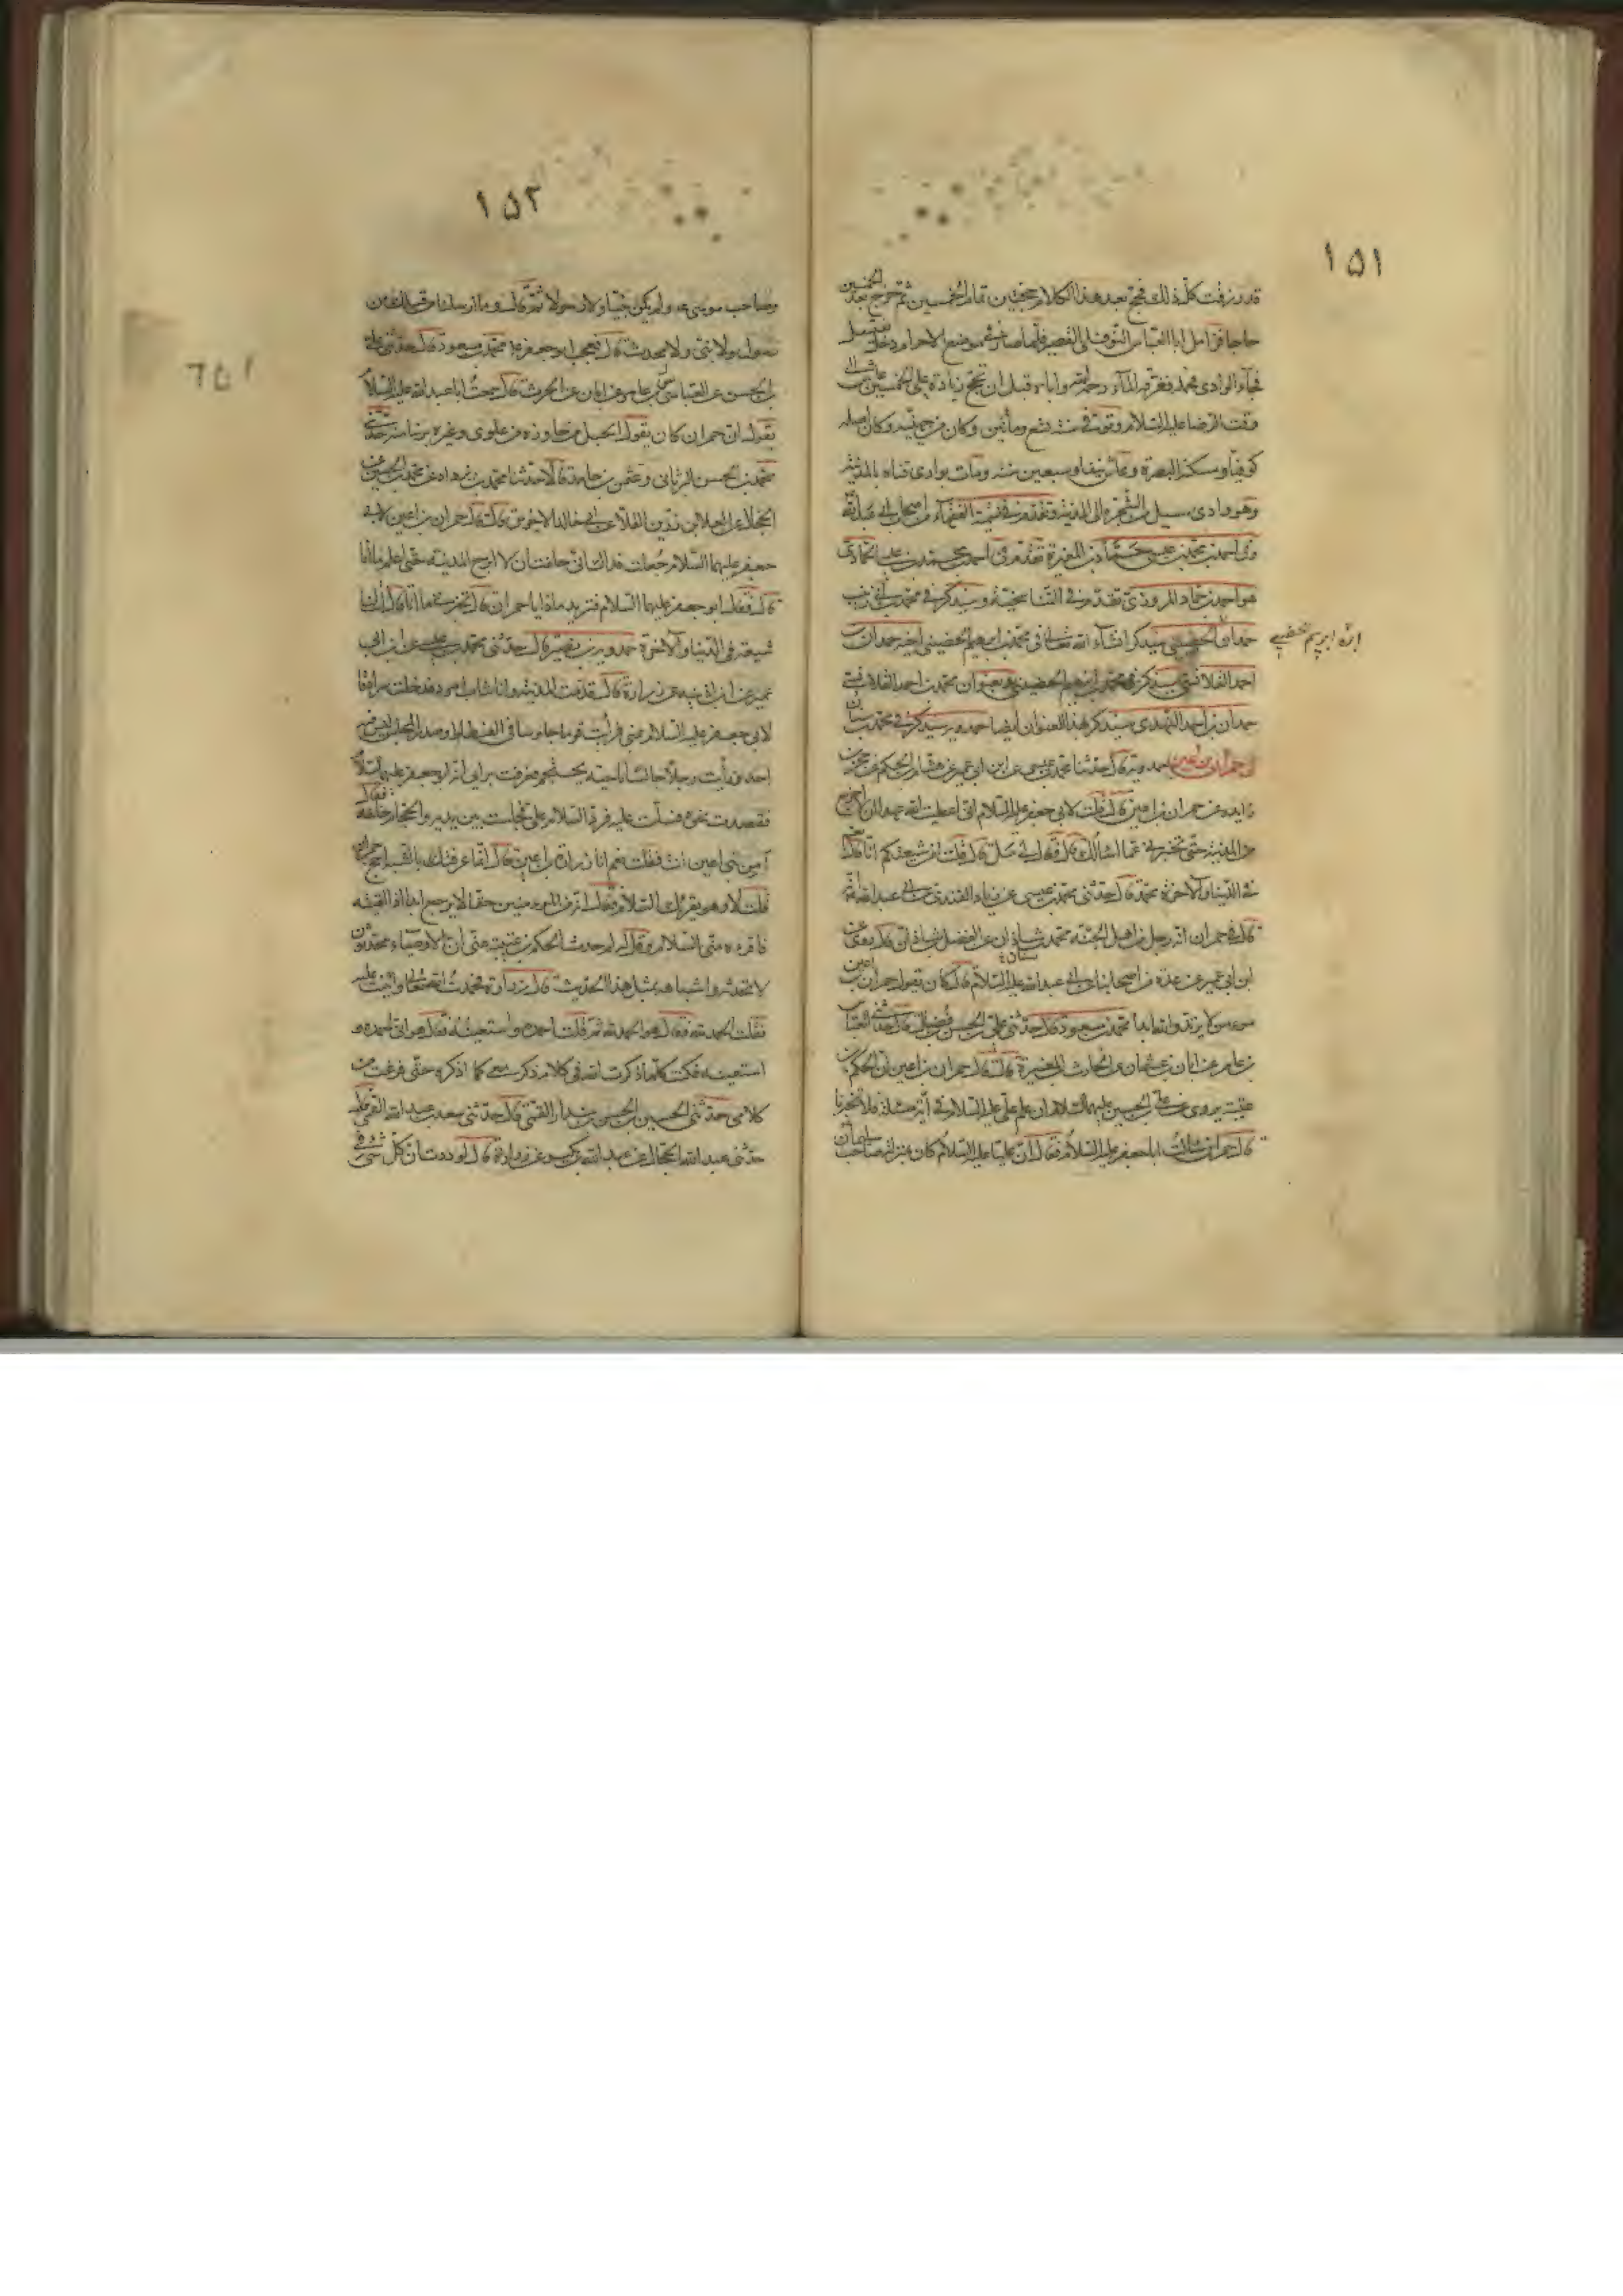 ١٥١
قد رزقت كل ذلك فحج بعد هذا الكلام حجتين تمام الخمسين ثم خرج بعد الخمسين
حاجا فزامل ابا العباس النوفلي القصير فلما صار في موضع الاحرام دخل يغتسل
فجاء الوادي فحمله فغرقه الماء رحمه الله واباه قبل ان يحج زيادة على الخمسين عاش الى
وقت الرضا عليه السلام وتوفي في سنة تسع ومأتين وكان من جهينة وكان اصله
كوفيا ومسكنه البصرة وعاش نيفا وسبعين سنة ومات بوادي قناة بالمدينة
وهو وادي يسيل من الشجرة الى المدينة وتقدم في تسمية الفقهاء من اصحاب ابي عبد الله
وفي احمد بن محمد بن عيسى حماد بن المغيرة تقدم في احمد بن محمد بن
هو احمد بن حماد المروزي تقدم في وسيذكر في محمد بن
حمدان الحضيني سيذكر انشاء الله تعالى في محمد بن ابرهيم الحضيني اخيه حمدان بن
احمد القلانسي سيذكر في محمد بن ابرهيم الحضيني وبعنوان محمد بن احمد القلانسي
حمدان بن احمد النهدي سيذكر بهذا العنوان ايضا حمدويه سيذكر في محمد بن سنان
في حمران بن اعين حمدويه قال حدثنا محمد بن عيسى عن ابن ابي عمير عن هشام بن الحكم عن حجر بن
زايده عن حمران بن اعين قال قلت لابي جعفر عليه السلام اني اعطيت الله عهدا ان لا اخرج
من المدينة حتى تخبرني عما اسألك قال فقال لي سل قال قلت امن شيعتكم انا قال نعم
في الدنيا والاخرة محمد قال حدثني محمد بن عيسى عن زياد القندي عن ابي عبد الله انه
قال في حمران انه رجل من اهل الجنة محمد بن شاذان عن الفضل بن شاذان قال روى عن
ابن ابي عمير عن عدة من اصحابنا عن ابي عبد الله عليه السلام قال كان يقول حمران بن اعين
مؤمن لا يرتد والله ابدا محمد بن مسعود قال حدثني علي بن الحسن بن فضال قال حدثني العباس
بن عامر عن ابان بن عثمان عن الحارث بن المغيرة قال قال حمران بن اعين ان الحكم بن
عتيبة يروي عن علي بن الحسين عليهما السلام ان علم علي عليه السلام في آية مسئلة فلا تخبرنا
قال حمران سألت ابا جعفر عليه السلام فقال ان عليا عليه السلام كان بمنزلة صاحب سليمان
ابن ابرهيم الحضيني
١٥٢
وصاحب موسى ولم يكن نبيا ولا رسولا ثم قال وما ارسلنا من قبلك من
رسول ولا نبي ولا محدث قال فعجب ابو جعفر محمد بن مسعود قال حدثني علي
بن الحسن عن العباس بن عامر عن ابان عن الحرث قال سمعت ابا عبد الله عليه السلام
يقول ان حمران كان يقول بحبل من جاوزه من علوي وغيره برئنا منه حدثني
محمد بن الحسن البراثي وعثمن بن حامد قالا حدثنا محمد بن يزداد عن محمد بن الحسين عن
الحجال عن العلا بن رزين القلا عن ابي خالد الاخرس قال قال حمران بن اعين لابي
جعفر عليهما السلام جعلت فداك اني حلفت ان لا ابرح المدينة حتى اعلم ما انا
قال فقال ابو جعفر عليهما السلام فتريد ماذا يا حمران قال تخبرني ما انا قال انت لنا
شيعة في الدنيا والاخرة حمدويه بن نصير قال حدثني محمد بن عيسى عن ابن ابي
عمير عن ابن اذينه عن زرارة قال قدمت المدينة وانا شاب امرد فدخلت سرادقا
لابي جعفر عليه السلام بمنى فرأيت قوما جلوسا في الفسطاط وصدر المجلس ليس فيه
احد ورأيت رجلا جالسا ناحية يحتجم فعرفت برأيي انه ابو جعفر عليهما السلام
فقصدت نحوه فسلمت عليه فرد السلام علي فجلست بين يديه والحجام خلفه فقال
أمن بني اعين انت فقلت نعم انا زرارة بن اعين فقال انما عرفتك بالشبه احج حمران
قلت لا وهو يقرئك السلام فقال انه من المؤمنين حقا لا يرجع ابدا اذا لقيته
فاقرءه مني السلام وقل له لم حدثت الحكم بن عتيبة عني ان الاوصياء محدثون
لا تحدثه واشباهه بمثل هذا الحديث قال زرارة فحمدت الله تعالى واثنيت عليه
فقلت الحمد لله فقال هو الحمد لله ثم قلت احمده واستعينه فقال هو اني احمده و
استعينه فكنت كلما ذكرت الله في كلام ذكر معي كما اذكره حتى فرغت من
كلامي حدثني الحسين بن الحسن بن بندار القمي قال حدثني سعد بن عبد الله القمي قال
حدثني عبد الله الحجال عن عبد الله بن بكير عن زرارة قال لوددت ان كل شيء في